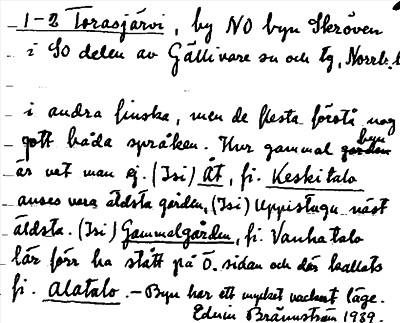 1-2 Torasjärvi, by NO byn Skröven
i SO delen av Gällivare sn och tg, Norrb. l
i andra finska, men de flesta förstå nog
gott båda språken. Hur gammal byn
är vet man ej. (Isi) Åt, fi. Keskitalo
anses vara äldsta gården, (Isi) Uppistugu näst
äldsta. (Isi) Gammelgården, fi. Vanhatalo
lär förr ha stått på Ö. sidan och där kallats
fi. Alatalo. – Byn har ett mycket vackert läge.
Edvin Brännström 1989.